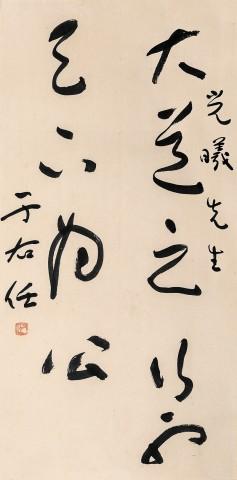 觉曦先生
大道之行也
天下為公
于右任